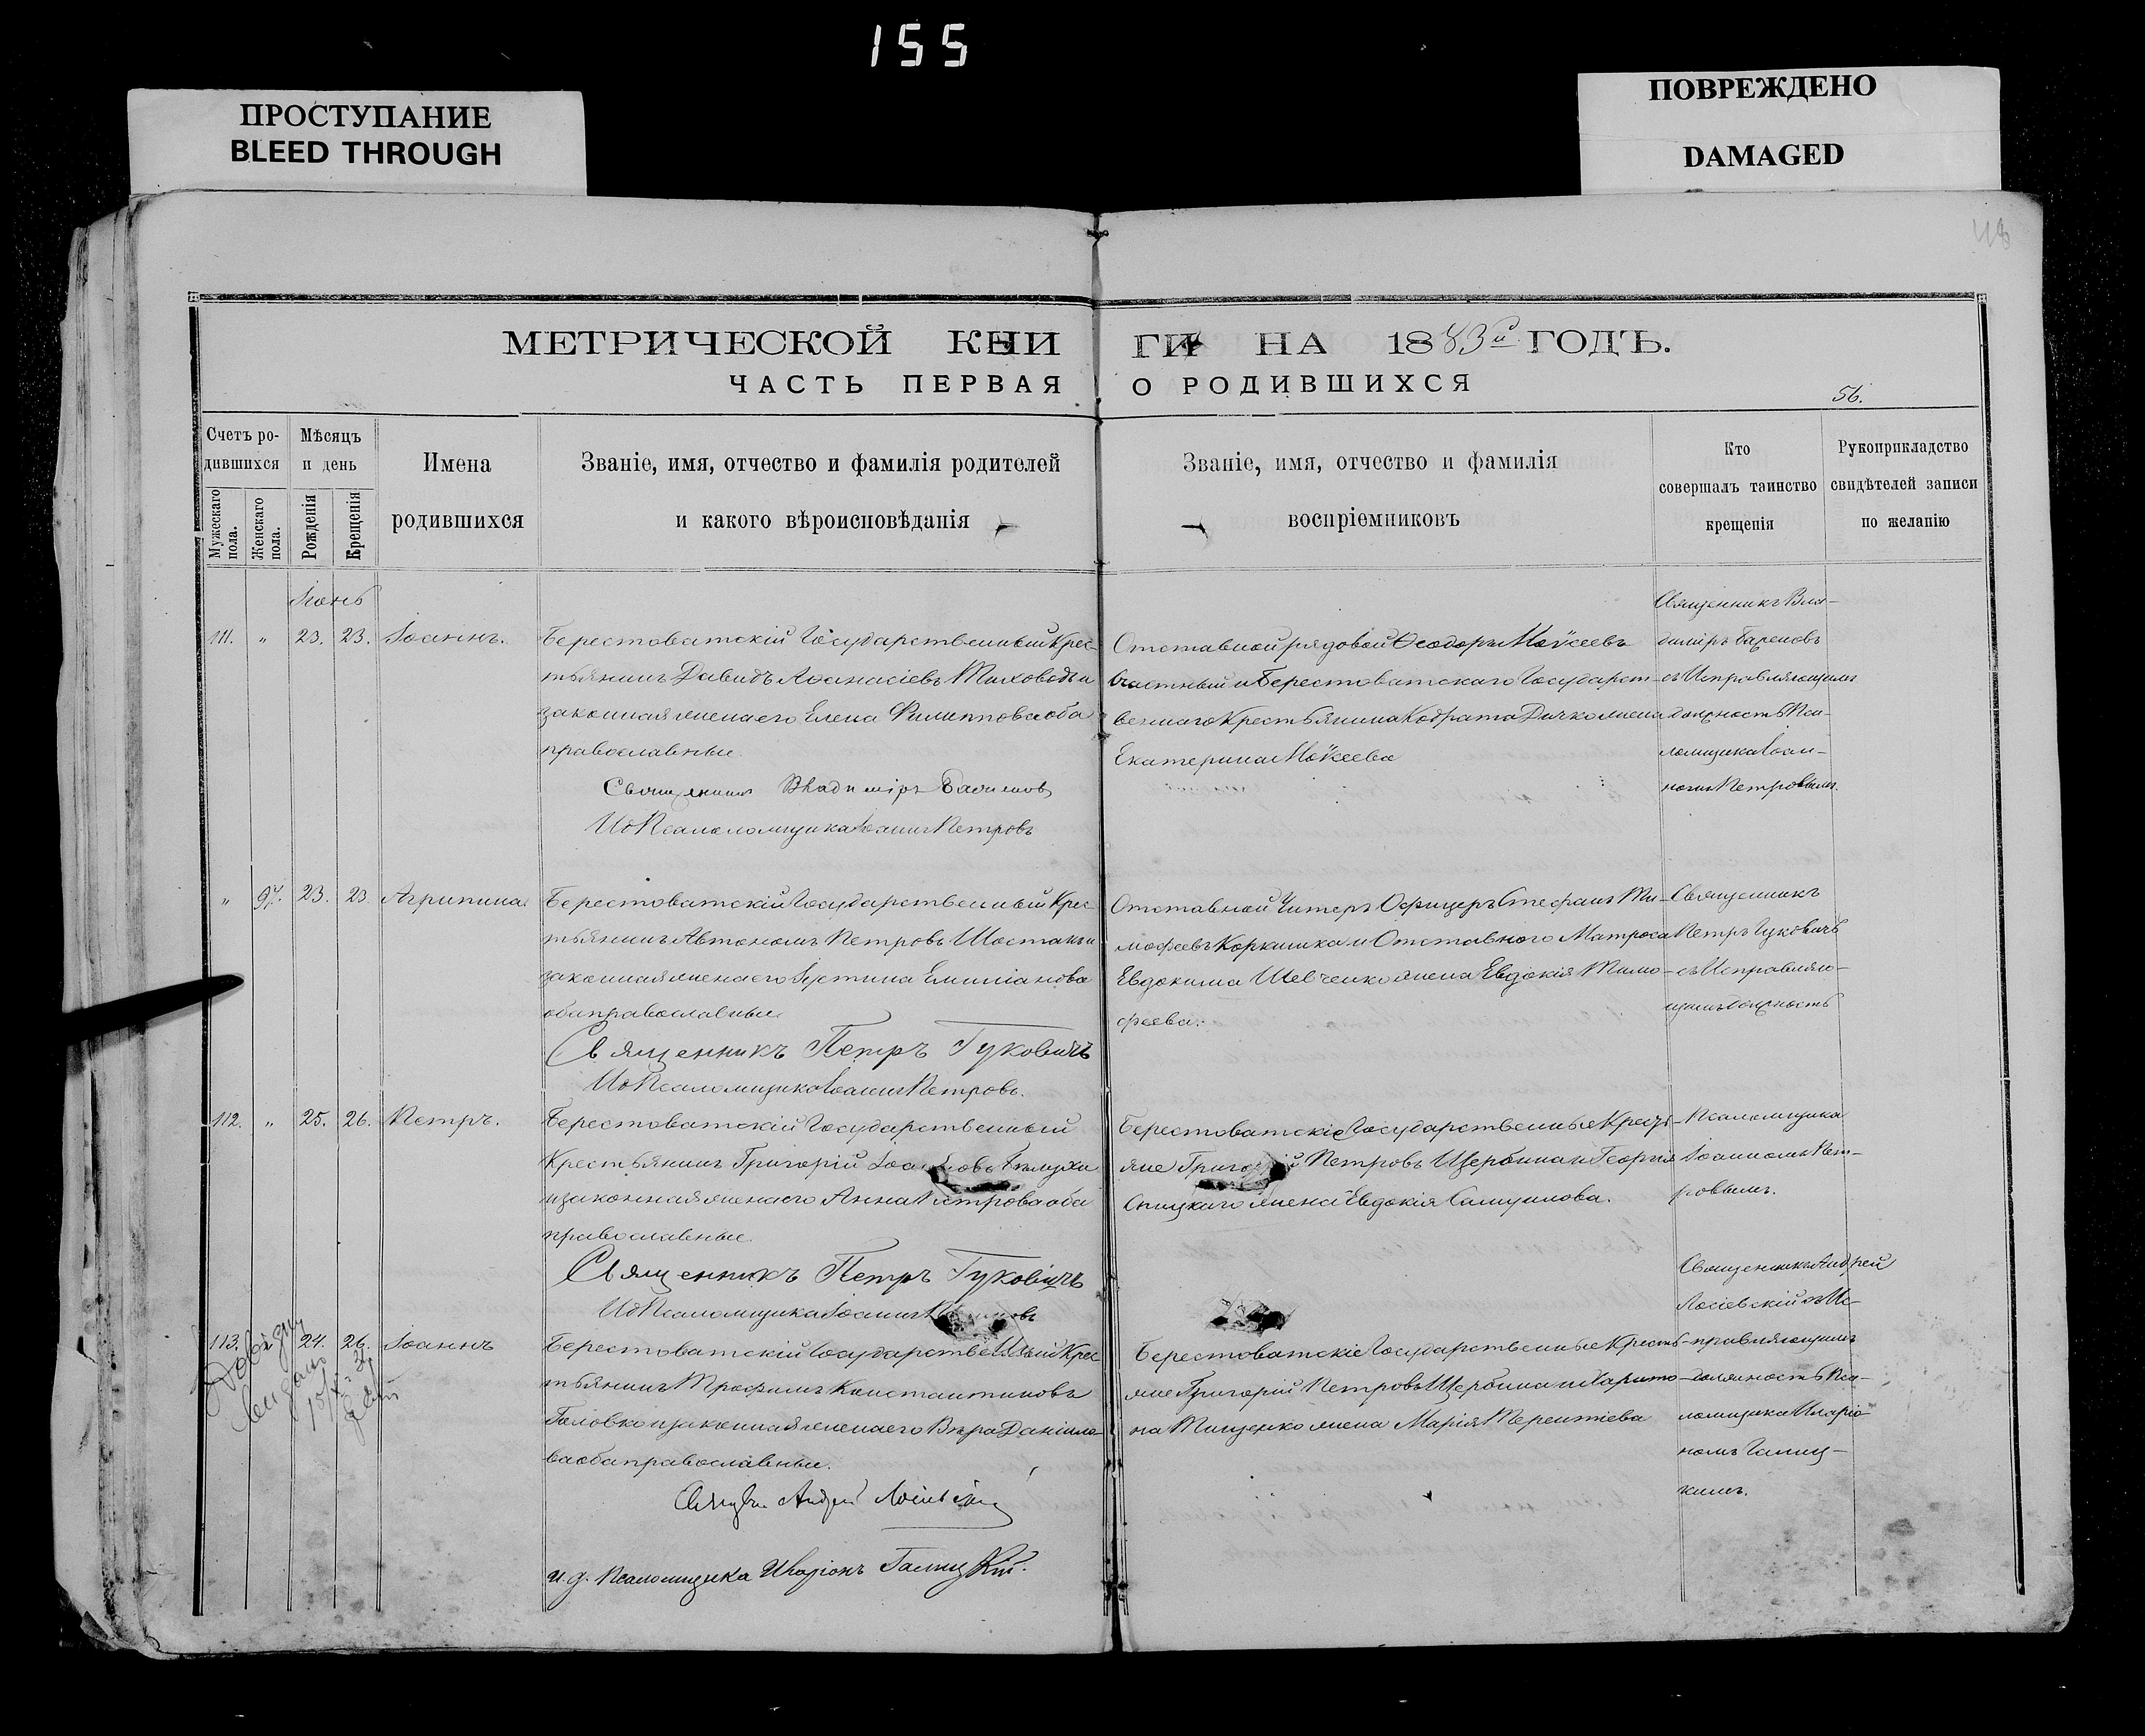 155
ПРОСТУПАНИЕ
BLEED THROUGH
ПОВРЕЖДЕНО
DAMAGED
МЕТРИЧЕСКОЙ КНИГИ НА 1883й ГОДЪ.
ЧАСТЬ ПЕРВАЯ О РОДИВШИХСЯ
56.
Счетъ ро-
дившихся
Мужескаго пола.
Женскаго пола.
Мѣсяцъ
и день
Рожденія
Крещенія
Имена
родившихся
Званіе, имя, отчество и фамилія родителей
и какого вѣроисповѣданія
Званіе, имя, отчество и фамилія
воспріемниковъ
Кто
совершалъ таинство
крещенія
Рукоприкладство
свидѣтелей записи
по желанію
Іюнь
111. " 23. 23. Іоаннъ.
Берестоватскій Государственный Крес-
тьянинъ Давидъ Аѳанасіевъ и
законная жена его Елена Филиппова оба
православные.
Священникъ Владиміръ
Ид Псаломщика Іоаннъ Петровъ
Отставной рядовой Ѳеодоръ Моѵсеевъ
и Берестоватскаго Государст-
веннаго Крестьянина Кодрата Дичко жена
Екатерина Моѵсеева
Священникъ Вла-
диміръ
съ Исправляющимъ
должность Пса-
ломщика Іоан-
номъ Петровымъ.
" 97. 23. 23 Агрипина
Берестоватскій Государственный Крес-
тьянинъ Автономъ Петровъ Шостакъ и
законная жена его Іустина Емиліанова
оба православные
Священникъ Петръ Гуковичъ
Ид Псаломщика Іоаннъ Петровъ.
Отставной Унтеръ Офицеръ Стефанъ Ти-
мофеевъ и Отставного Матроса
Евдокима Шевченко жена Евдокія Тимо-
феева.
Священникъ
Петръ Гуковичъ
съ Исправляю-
щимъ должность
112. " 25. 26. Петръ.
Берестоватскій Государственный
Крестьянинъ Григорій
и законная жена его Анна Петрова оба
православные.
Священникъ Петръ Гуковичъ
Ид Псаломщика Іоаннъ
Берестоватскіе Государственные Кресть-
яне Григорій Петровъ Щербина и Георгія
жена Евдокія Самуилова.
Псаломщика
Іоанномъ Пет-
ровымъ.
113. 24. 26. Іоаннъ
Берестоватскій Государственный Крес-
тьянинъ Трофимъ Константиновъ
Головко и законная жена его Вѣра Даніило-
ва оба православные.
Андрей
и. д. Псаломщика Иларіонъ Галицкій.
Берестоватскіе Государственные Кресть-
яне Григорій Петровъ Щербина и Харито-
на Тищенко жена Марія Терентіева
Священникъ Андрей
съ Ис-
правляющимъ
должность Пса-
ломщика Иларіо-
номъ Галиц-
кимъ.